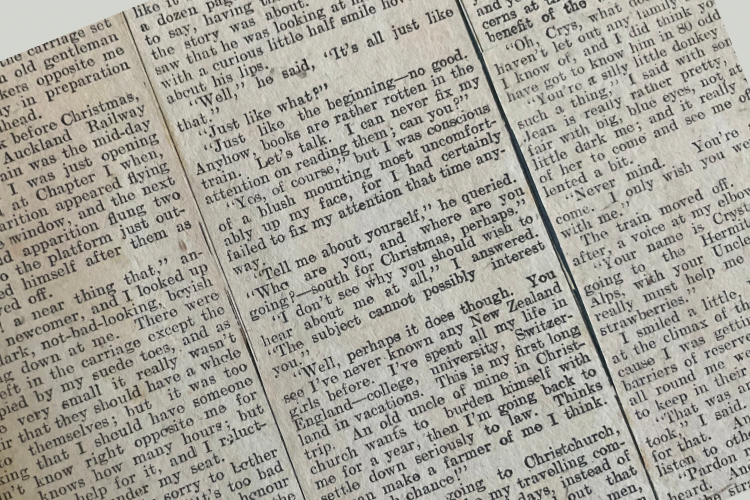 he carriage set
n old gentleman
kers opposite me
y in preparation
head.
k before Christmas,
Auckland Railway
ain was the mid-day
I was just opening
at Chapter I when,
sition appeared flying
e window, and the next
d apparition flung two
o the platform just out-
ed himself after them as
ed off.
a near thing that," an
newcomer, and I looked up
lark, not-bad-looking, boyish
ng down at me. There were
eft in the carriage except the
pied by my suede toes, and as
very small it really wasn't
ir that they should have a whole
to themselves; but it was too
ing that I should have someone
't know right opposite me for
knows how many hours; but
help for it, and I reluct-
under my seat.
sorry to bother
it's too bad
honour
a dozen pag
to say, having
the story was about.
saw that he was looking at me
with a curious little half smile hov
about his lips.
"Well," he said, "It's all just like
that."
"Just like what?"
"Just like the beginning—no good.
Anyhow, books are rather rotten in the
train. Let's talk. I can never fix my
attention on reading them; can you?"
"Yes, of course," but I was conscious
of a blush mounting most uncomfort-
ably up my face, for I had certainly
failed to fix my attention that time any-
way.
"Tell me about yourself," he queried.
"Who are you, and where are you
going?—south for Christmas, perhaps."
"I don't see why you should wish to
hear about me at all," I answered.
"The subject cannot possibly interest
you."
"Well, perhaps it does though. You
see I've never known any New Zealand
girls before. I've spent all my life in
England—college, university, Switzer-
land in vacations. This is my first long
trip. An old uncle of mine in Christ-
church wants to burden himself with
me for a year, then I'm going back to
settle down seriously to law. Thinks
he can make a farmer of me I think.
chance!"
going to Christchurch,
my travelling com-
days, instead of
out that
and yo
cerns at the
benefit of the
"Oh, Crys, what do
haven't let out my family
I know of, and I did think yo
have got to know him in 80 odd
"You're a silly little donkey
such a thing," I said with som
Jean is really rather pretty,
fair with big, blue eyes, not
little dark me; and it really
of her to come and see me o
lented a bit.
"Never mind. You're
come. I only wish you we
with me."
The train moved off.
after a voice at my elbo
"Your name is Crysta
going to the Hermit
Alps, with your Uncl
really must help me
strawberries."
I smiled a little
at the climax of th
cause I was getti
barriers of reserv
all round me w
to keep in their
"That was
took," he said.
for that. An
listen to othe
"Pardon